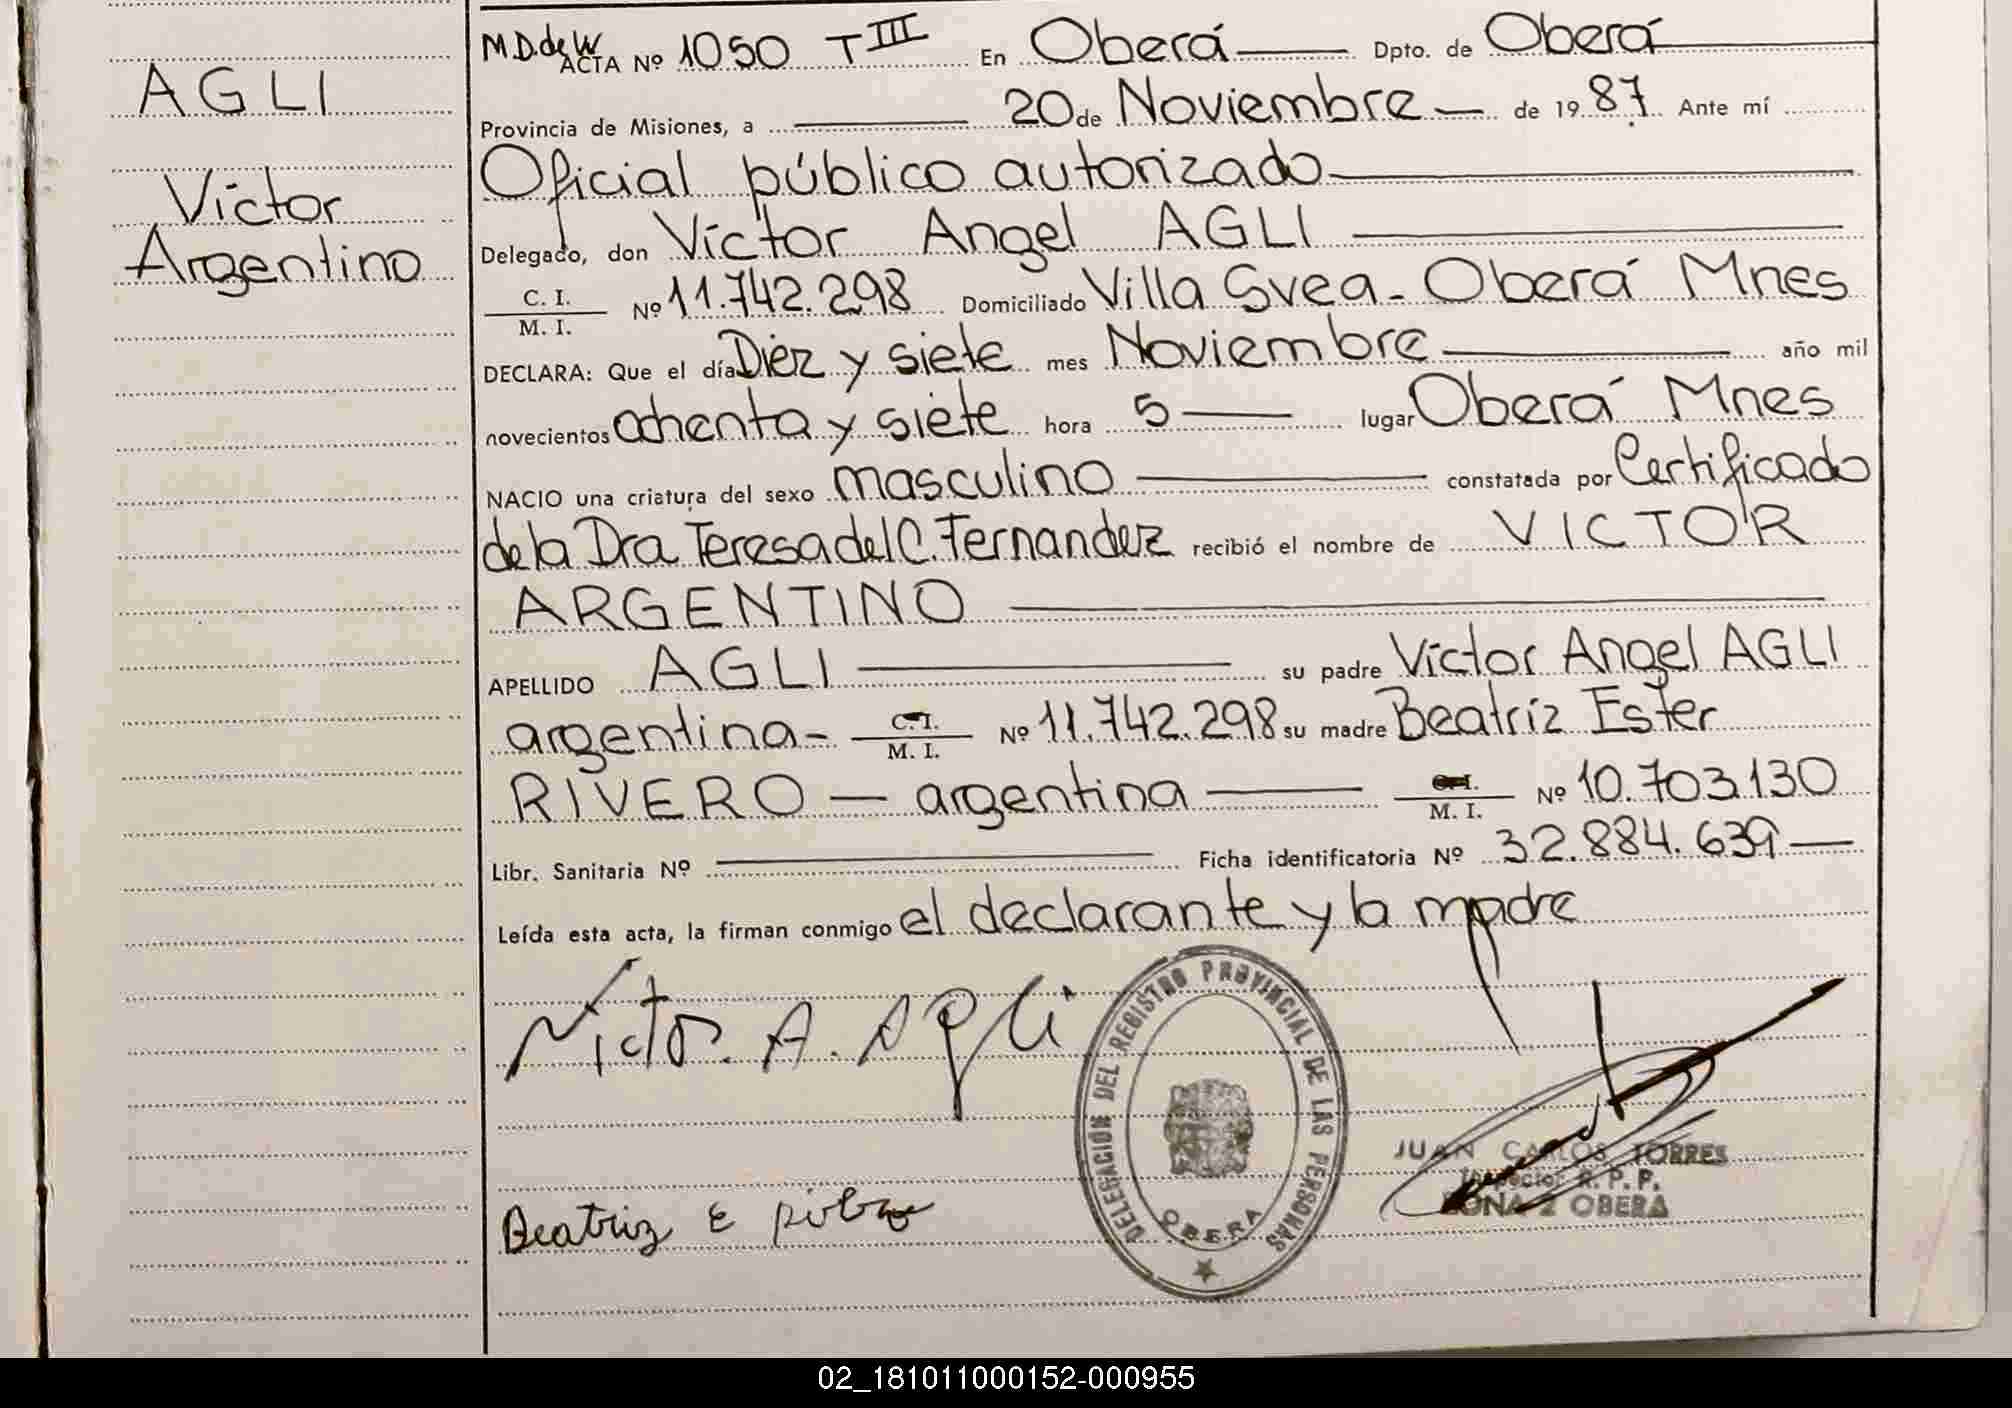 AGLI
Victor
Argentino
M.D. de W
ACTA Nº 1050 T III En Oberá Dpto. de Oberá
Provincia de Misiones, a 20 de Noviembre de 1987. Ante mí
Oficial público autorizado
Delegado, don Victor Angel AGLI
C. I. / M. I. Nº 11.742.298 Domiciliado Villa Svea - Oberá Mnes
DECLARA: Que el día Diez y siete mes Noviembre año mil
novecientos ochenta y siete hora 5 lugar Oberá Mnes
NACIO una criatura del sexo masculino constatada por Certificado
de la Dra Teresa del C. Fernandez recibió el nombre de VICTOR
ARGENTINO
APELLIDO AGLI su padre Victor Angel AGLI
argentina - C. I. / M. I. Nº 11.742.298 su madre Beatriz Ester
RIVERO — argentina — C. I. / M. I. Nº 10.703.130
Libr. Sanitaria Nº Ficha identificatoria Nº 32.884.639 —
Leída esta acta, la firman conmigo el declarante y la madre
Victor. A. Agli
DELEGACIÓN DEL REGISTRO PROVINCIAL DE LAS PERSONAS
OBERA
JUAN CARLOS TORRES
Inspector R. P. P.
ZONA 2 OBERA
Beatriz E
02_181011000152-000955